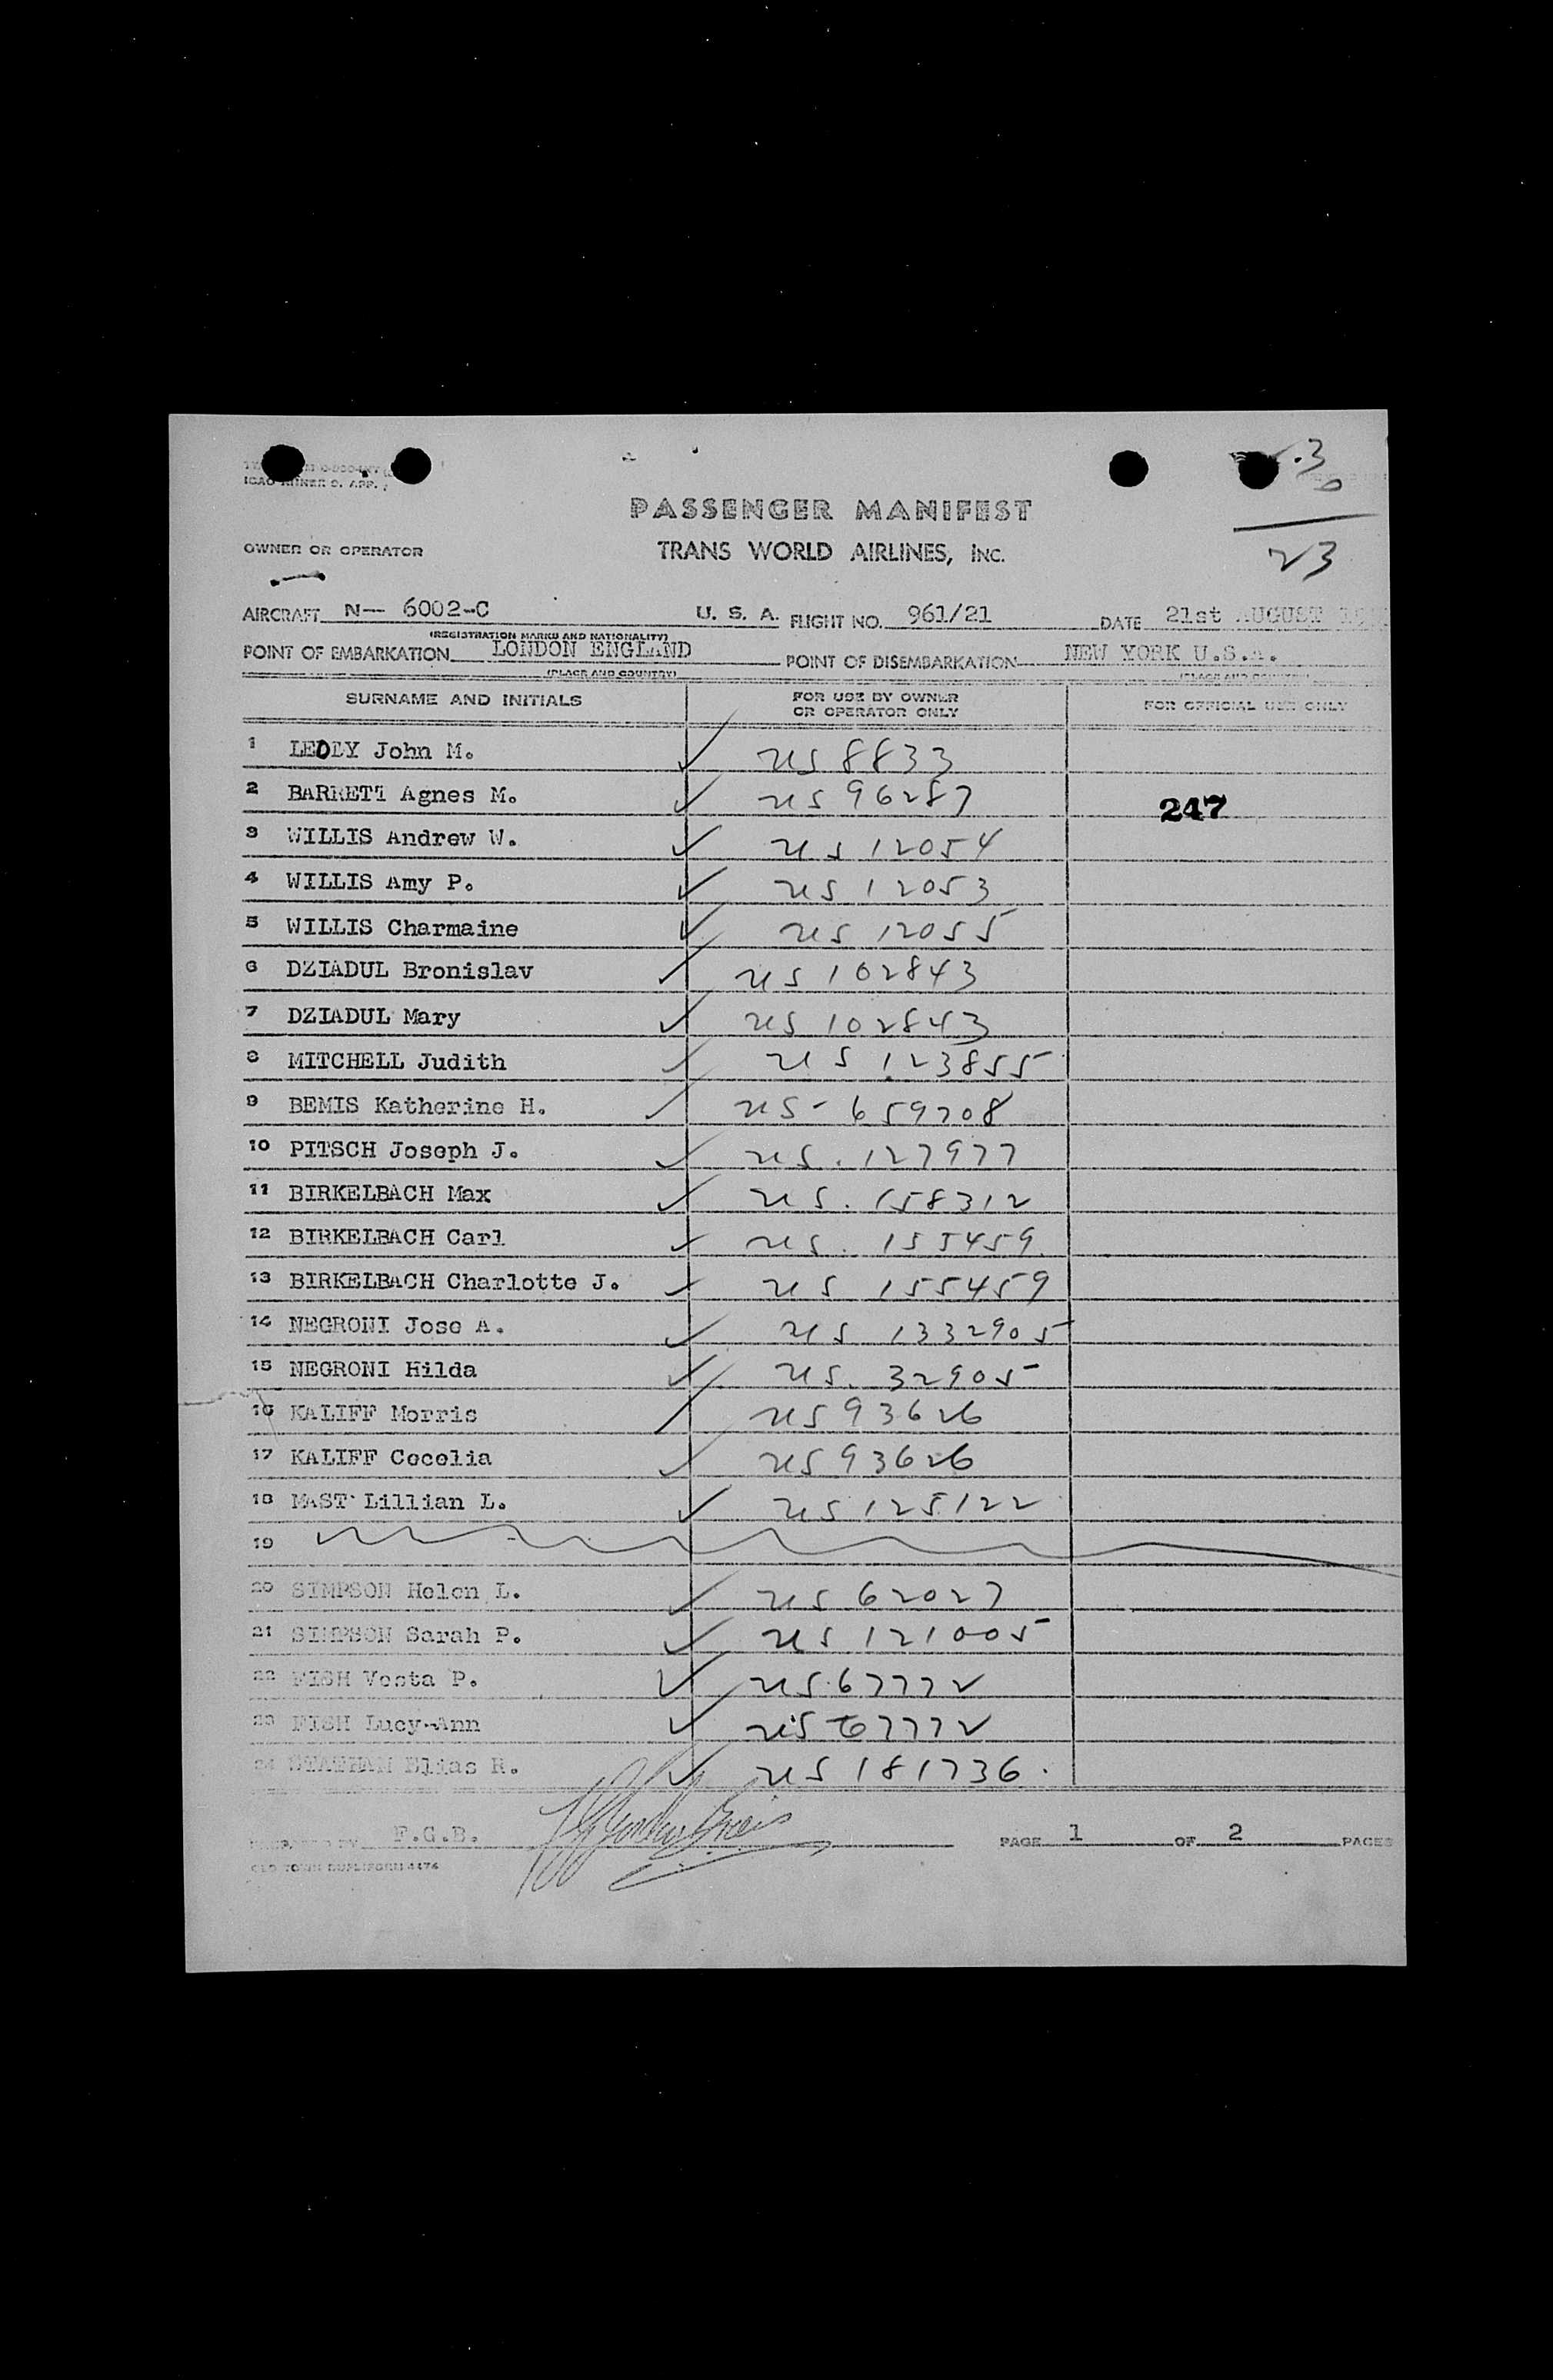 .3
0
23
ICAO ANNEX 9, APP.
PASSENGER MANIFEST
OWNER OR OPERATOR TRANS WORLD AIRLINES, Inc.
AIRCRAFT N— 6002-C U. S. A. FLIGHT NO. 961/21 DATE 21st AUGUST
(REGISTRATION MARKS AND NATIONALITY)
POINT OF EMBARKATION LONDON ENGLAND POINT OF DISEMBARKATION NEW YORK U.S.A.
(PLACE AND COUNTRY) (PLACE AND COUNTRY)
SURNAME AND INITIALS FOR USE BY OWNER OR OPERATOR ONLY FOR OFFICIAL USE ONLY
1 LEDDY John M. ✓ US 8833
2 BARRETT Agnes M. ✓ US 96287 247
3 WILLIS Andrew W. ✓ US 12054
4 WILLIS Amy P. ✓ US 12053
5 WILLIS Charmaine ✓ US 12055
6 DZIADUL Bronislav ✓ US 102843
7 DZIADUL Mary ✓ US 102843
8 MITCHELL Judith ✓ US 123855
9 BEMIS Katherine H. ✓ US- 659708
10 PITSCH Joseph J. ✓ US. 127977
11 BIRKELBACH Max ✓ US. 158312
12 BIRKELBACH Carl ✓ US. 155459
13 BIRKELBACH Charlotte J. ✓ US 155459
14 NEGRONI Jose A. ✓ US 1332905
15 NEGRONI Hilda ✓ US. 32905
16 KALIFF Morris ✓ US 93626
17 KALIFF Cecelia ✓ US 93626
18 MAST Lillian L. ✓ US 125122
19
20 SIMPSON Helen L. ✓ US 62027
21 SIMPSON Sarah P. ✓ US 121005
22 FISH Vesta P. ✓ US 67772
23 FISH Lucy-Ann ✓ US 67772
24 STATHAM Elias H. ✓ US 181736.
PREPARED BY F.G.B. PAGE 1 OF 2 PAGES